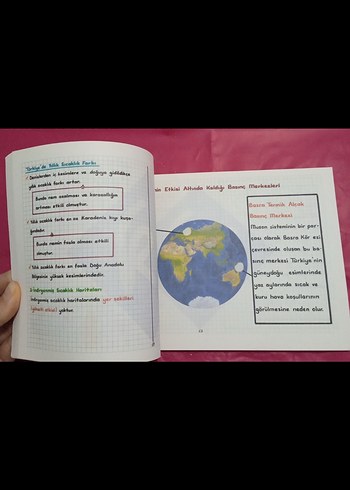 Türkiye'de Yıllık Sıcaklık Farkı
✓ Denizlerden iç kesimlere ve doğuya gidildikçe
yıllık sıcaklık farkı artar.
Bunda nem azalması ve karasallığın
artması etkili olmuştur.
✓ Yıllık sıcaklık farkı en az Karadeniz kıyı kuşa-
ğındadır.
Bunda nemin fazla olması etkili
olmuştur.
✓ Yıllık sıcaklık farkı en fazla Doğu Anadolu
Bölgesinin yüksek kesimlerindedir.
İndirgenmiş Sıcaklık Haritaları
İndirgenmiş sıcaklık haritalarında yer şekilleri
(yükselti etkisi) yoktur.
nin Etkisi Altında Kaldığı Basınç Merkezleri
Basra Termik Alçak
Basınç Merkezi
Muson sisteminin bir par-
çası olarak Basra Körfezi
çevresinde oluşan bu ba-
sınç merkezi Türkiye'nin
güneydoğu kesimlerinde
yaz aylarında sıcak ve
kuru hava koşullarının
görülmesine neden olur.